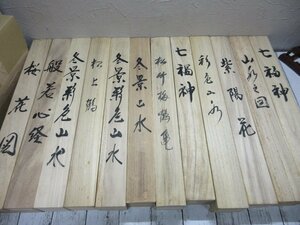 七福神
山水之図
紫陽花
彩色山水
七福神
松竹梅鶴亀
冬景山水
冬景彩色山水
松上鶴
冬景彩色山水
般若心経
桜花図